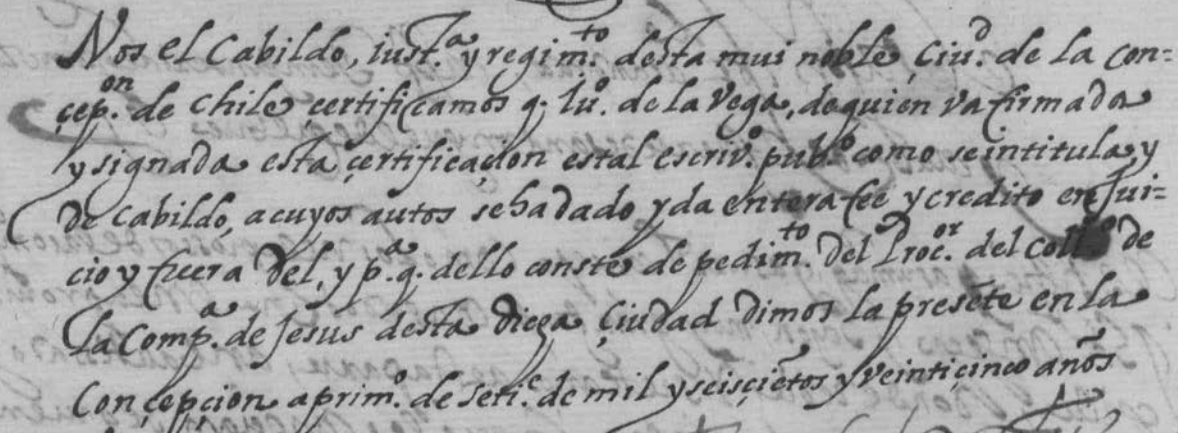 Nos el Cabildo, iust.ª y regim.to desta mui noble çiu.d de la con=
çep.on de chile çertificamos q. Iu.º de la Vega, de quien va firmada
y signada esta çertificaçion es tal escriv.º pub.º como se intitula, y
de Cabildo, a cuyos autos se ha dado y da entera fee y credito en Jui=
cio y fuera del, y p.ª q. dello conste de pedim.to del Proc.or del Coll.º de
la Comp.ª de Jesus desta dicha çiudad dimos la presẽte en la
Conçepçion a prim.º de seti.e de mil y seisçiẽtos y veinticinco años